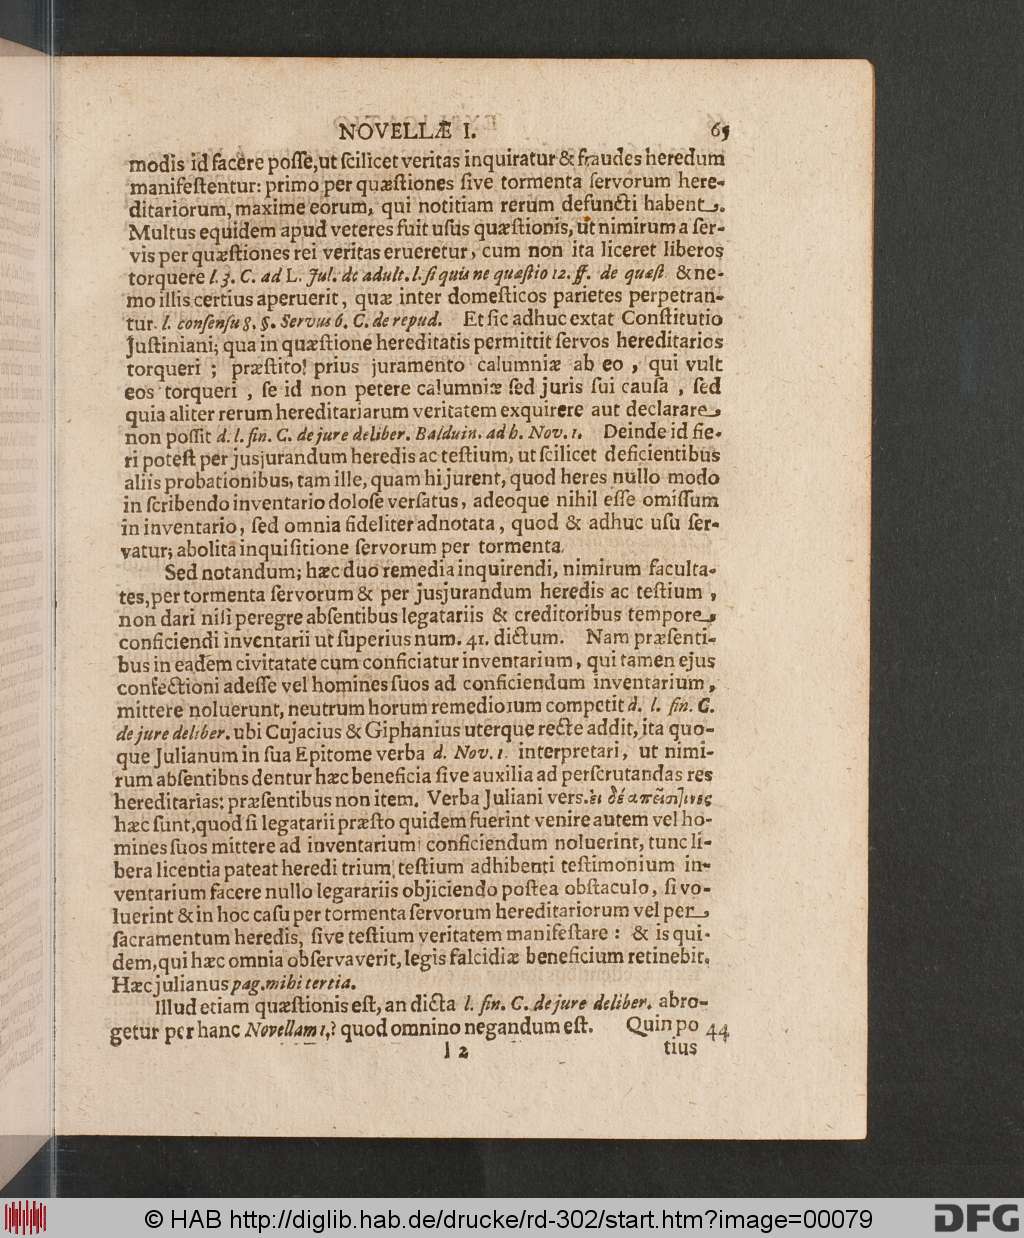 NOVELLÆ I. 65
modis id facere poſſe, ut ſcilicet veritas inquiratur & fraudes heredum
manifeſtentur: primo per quæſtiones ſive tormenta ſervorum here-
ditariorum, maxime eorum, qui notitiam rerum defuncti habent.
Multus equidem apud veteres fuit uſus quæſtionis, ut nimirum a ſer-
vis per quæſtiones rei veritas erueretur, cum non ita liceret liberos
torquere l. 3. C. ad L. Jul. de adult. l. ſi quis ne quæſtio 12. ff. de quæſt. & ne-
mo illis certius aperuerit, quæ inter domeſticos parietes perpetran-
tur. l. conſenſu 8. §. Servus 6. C. de repud. Et ſic adhuc extat Conſtitutio
Juſtiniani; qua in quæſtione hereditatis permittit ſervos hereditarios
torqueri; præſtito! prius juramento calumniæ ab eo, qui vult
eos torqueri, ſe id non petere calumniæ ſed juris ſui cauſa, ſed
quia aliter rerum hereditariarum veritatem exquirere aut declarare,
non poſſit d. l. fin. C. de jure deliber. Balduin. ad h. Nov. 1. Deinde id fie-
ri poteſt per jusjurandum heredis ac teſtium, ut ſcilicet deficientibus
aliis probationibus, tam ille, quam hi jurent, quod heres nullo modo
in ſcribendo inventario doloſe verſatus, adeoque nihil eſſe omiſſum
in inventario, ſed omnia fideliter adnotata, quod & adhuc uſu ſer-
vatur; abolita inquiſitione ſervorum per tormenta.
Sed notandum; hæc duo remedia inquirendi, nimirum faculta-
tes, per tormenta ſervorum & per jusjurandum heredis ac teſtium,
non dari niſi peregre abſentibus legatariis & creditoribus tempore,
conficiendi inventarii ut ſuperius num. 41. dictum. Nam præſenti-
bus in eadem civitatate cum conficiatur inventarium, qui tamen ejus
confectioni adeſſe vel homines ſuos ad conficiendum inventarium,
mittere noluerunt, neutrum horum remediorum competit d. l. fin. C.
de jure deliber. ubi Cujacius & Giphanius uterque recte addit, ita quo-
que Julianum in ſua Epitome verba d. Nov. 1. interpretari, ut nimi-
rum abſentibns dentur hæc beneficia ſive auxilia ad perſcrutandas res
hereditarias: præſentibus non item. Verba Juliani verſ. ει δέ
hæc ſunt, quod ſi legatarii præſto quidem fuerint venire autem vel ho-
mines ſuos mittere ad inventarium conficiendum noluerint, tunc li-
bera licentia pateat heredi trium teſtium adhibenti teſtimonium in-
ventarium facere nullo legarariis objiciendo poſtea obſtaculo, ſi vo-
luerint & in hoc caſu per tormenta ſervorum hereditariorum vel per
ſacramentum heredis, ſive teſtium veritatem manifeſtare: & is qui-
dem, qui hæc omnia obſervaverit, legis falcidiæ beneficium retinebit.
Hæc julianus pag. mihi tertia.
Illud etiam quæſtionis eſt, an dicta l. fin. C. de jure deliber. abro-
getur per hanc Novellam 1,? quod omnino negandum eſt. Quin po 44
I 2 tius
© HAB http://diglib.hab.de/drucke/rd-302/start.htm?image=00079 DFG